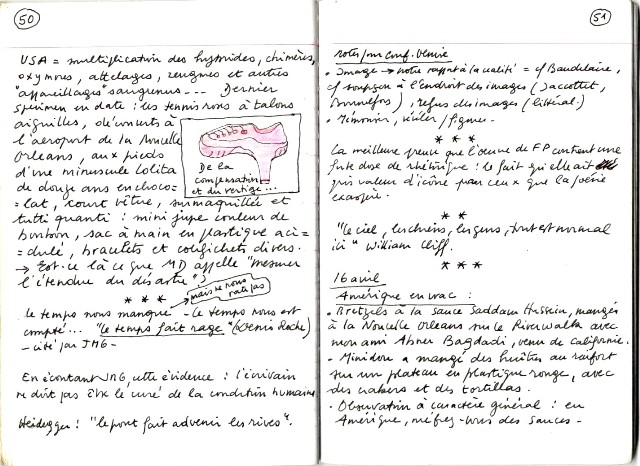 50
USA = multiplication des hybrides, chimères,
oxymores, attelages, zeugmes et autres
"appareillages" saugrenus --- Dernier
spécimen en date : les tennis roses à talons
aiguilles, découverts à
l'aéroport de la Nouvelle
Orleans, aux pieds
d'une minuscule lolita
de douze ans en choco=
=lat, court vêtue, surmaquillée et
tutti quanti : mini jupe couleur de
bonbon, sac à main en plastique aci=
=dulé, bracelets et colifichets divers.
De la
compensation
et du vertige...
→ Est-ce là ce que MD appelle "mesurer
l'étendue du désastre"?
* * *
mais ne nous
rate pas
Le temps nous manque - Le temps nous est
compté... "le temps fait rage" (Denis Roche)
- cité par JMG -
En écoutant JMG, cette évidence : l'écrivain
ne doit pas être le curé de la condition humaine
Heidegger : "le pont fait advenir les rives".
51
Notes pour conf. Venise
• Image → notre rapport à la réalité = cf Baudelaire,
cf soupçon à l'endroit des images (Jaccottet,
Bonnefoy), refus des images (littéral.)
• Mémoire, visible / figure.
* * *
La meilleure preuve que l'oeuvre de FP contient une
forte dose de rhétorique : le fait qu'elle ait
pris valeur d'icône pour ceux que la poésie
exaspère.
* *
"le ciel, les chiens, les gens, tout est normal
ici" William Cliff.
* * *
16 avril
Amérique en vrac :
• Bretzels à la sauce Saddam Hussein, mangés
à la Nouvelle Orleans sur le Riverwalk avec
mon ami Abner Bagdadi, venu de Californie.
• Minidou a mangé des huîtres au raifort
sur un plateau en plastique rouge, avec
des crakers et des tortillas.
• Observation à caractère général : en
Amérique, méfiez-vous des sauces -